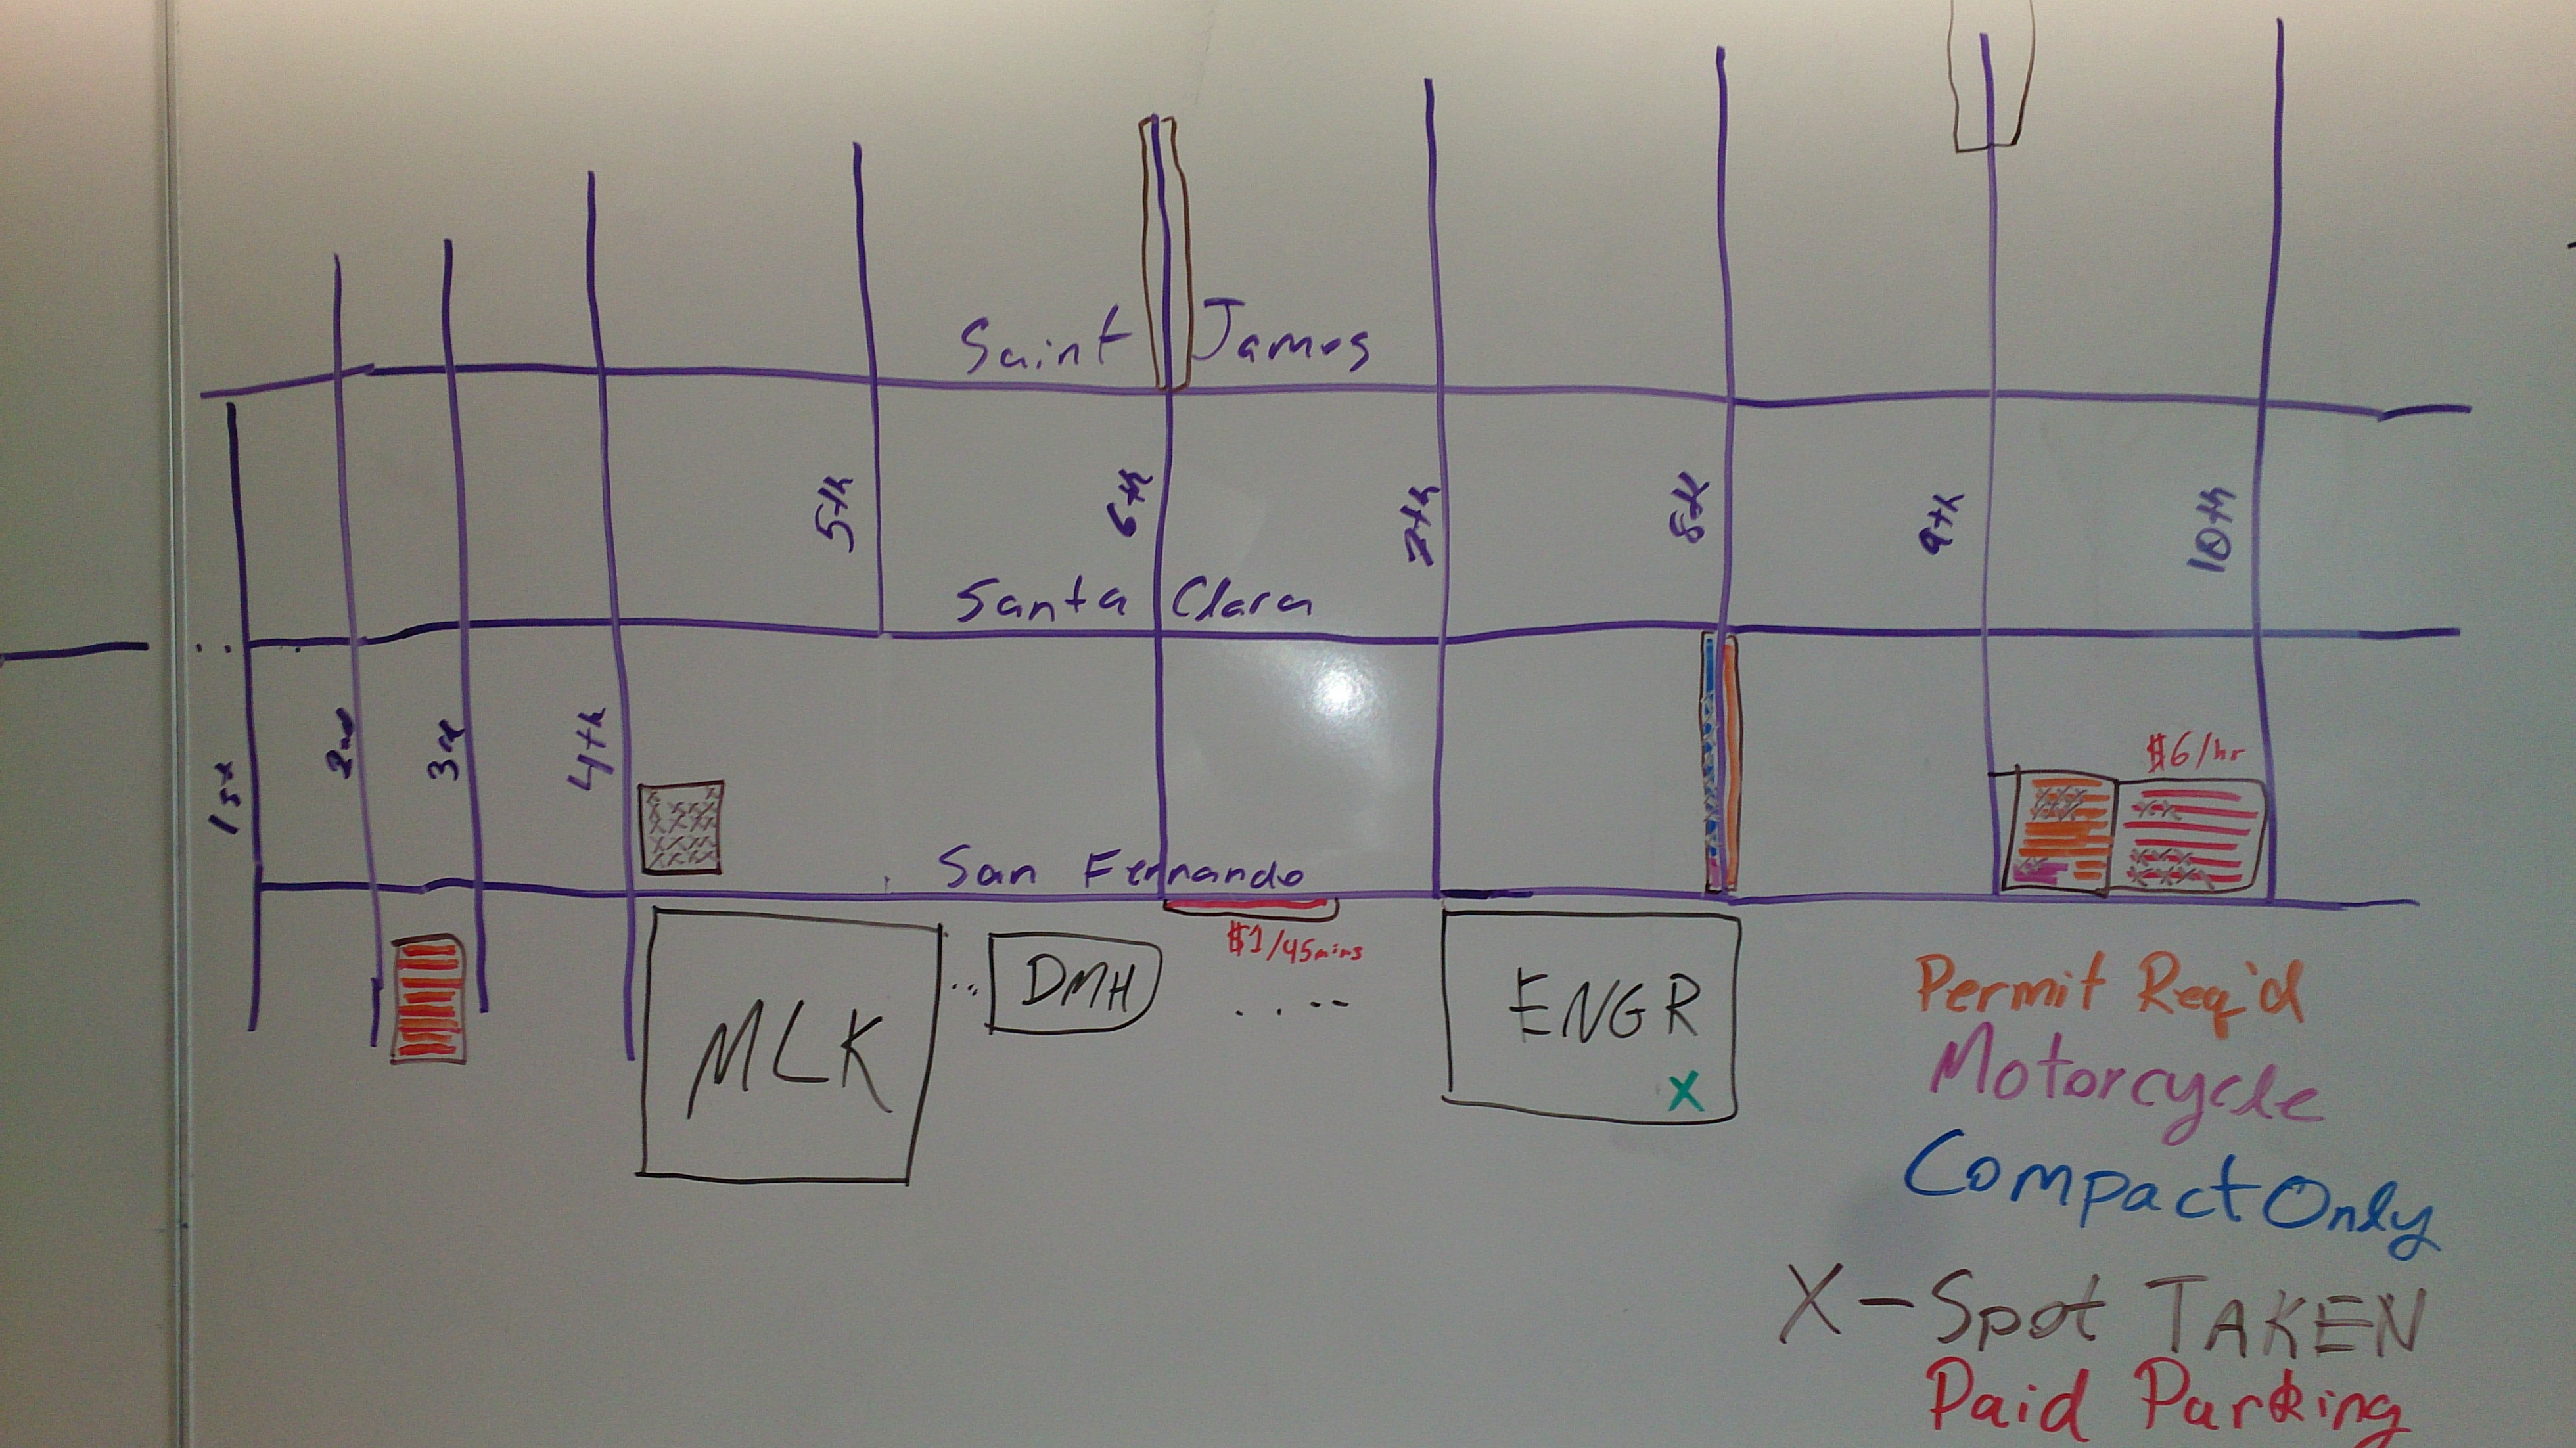 Saint James
5th
6th
7th
8th
9th
10th
Santa Clara
1st
2nd
3rd
4th
$6/hr
San Fernando
$1/45mins
MLK
DMH
ENGR
X
Permit Req'd
Motorcycle
Compact Only
X-Spot TAKEN
Paid Parking